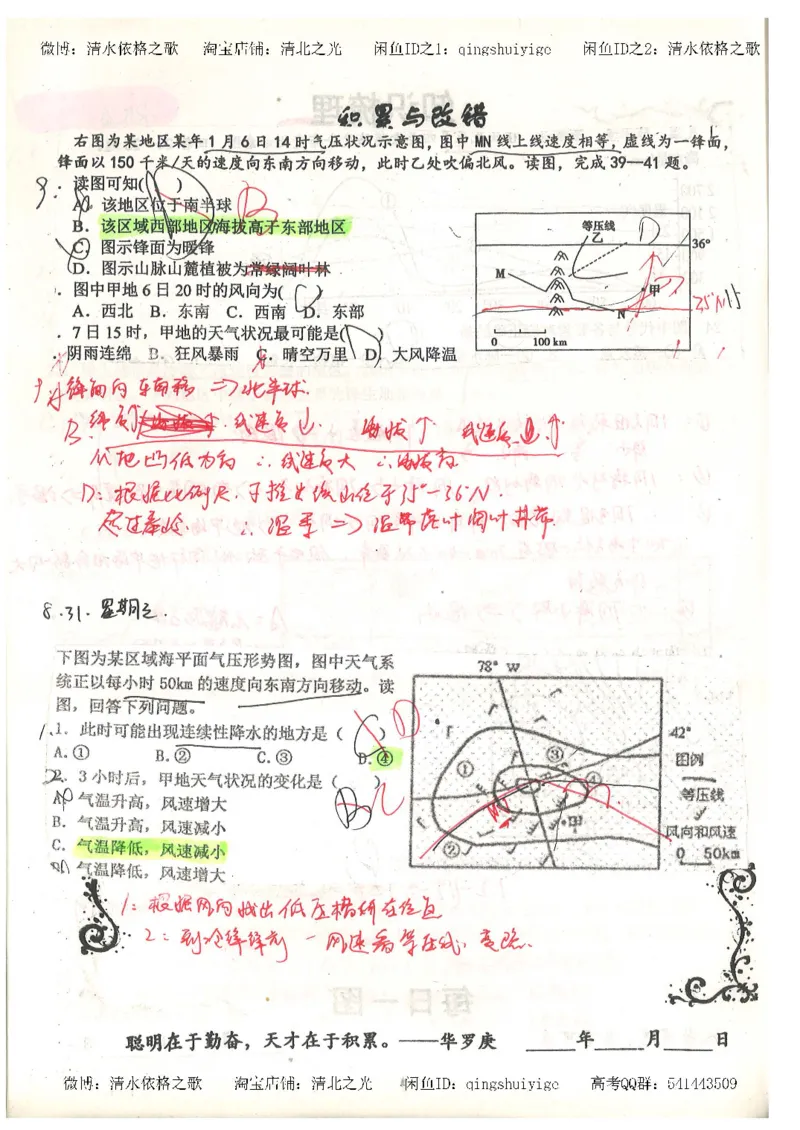 微博：清水依格之歌 淘宝店铺：清北之光 闲鱼ID之1：qingshuiyige 闲鱼ID之2：清水依格之歌
积累与改错
右图为某地区某年1月6日14时气压状况示意图，图中MN线上线速度相等，虚线为一锋面，
锋面以150千米/天的速度向东南方向移动，此时乙处吹偏北风。读图，完成39—41题。
9. 读图可知( ) B
A. 该地区位于南半球
B. 该区域西部地区海拔高于东部地区
C. 图示锋面为暖锋
D. 图示山脉山麓植被为常绿阔叶林
. 图中甲地6日20时的风向为( )
A. 西北 B. 东南 C. 西南 D. 东部
. 7日15时，甲地的天气状况最可能是( )
. 阴雨连绵 B. 狂风暴雨 C. 晴空万里 D. 大风降温
等压线
乙
D
36°
M
甲
35°N
N
0 100km
9 A 锋面向东南移 => 北半球.
B. 纬度 线速度↓. 海拔↑ 线速度↑
∴线速度大 ∴海拔高
D: 根据比例尺. 可推出该山位于35°-36°N.
∴温季 => 温带落叶阔叶林带.
8.31. 星期三.
下图为某区域海平面气压形势图，图中天气系
统正以每小时50km的速度向东南方向移动。读
图，回答下列问题。
1. 此时可能出现连续性降水的地方是（ ） D
A.① B.② C.③ D.④
2. 3小时后，甲地天气状况的变化是（ ）
A. 气温升高，风速增大
B. 气温升高，风速减小
C. 气温降低，风速减小
D. 气温降低，风速增大
78° W
42°
①
②
③
④
甲
图例
等压线
风向和风速
0 50km
1: 根据风向找出低压槽所在位置
2: 到冷锋锋前 - 风速看等压线.
聪明在于勤奋，天才在于积累。——华罗庚 _____年_____月_____日
微博：清水依格之歌 淘宝店铺：清北之光 闲鱼ID：qingshuiyige 高考QQ群：541443509